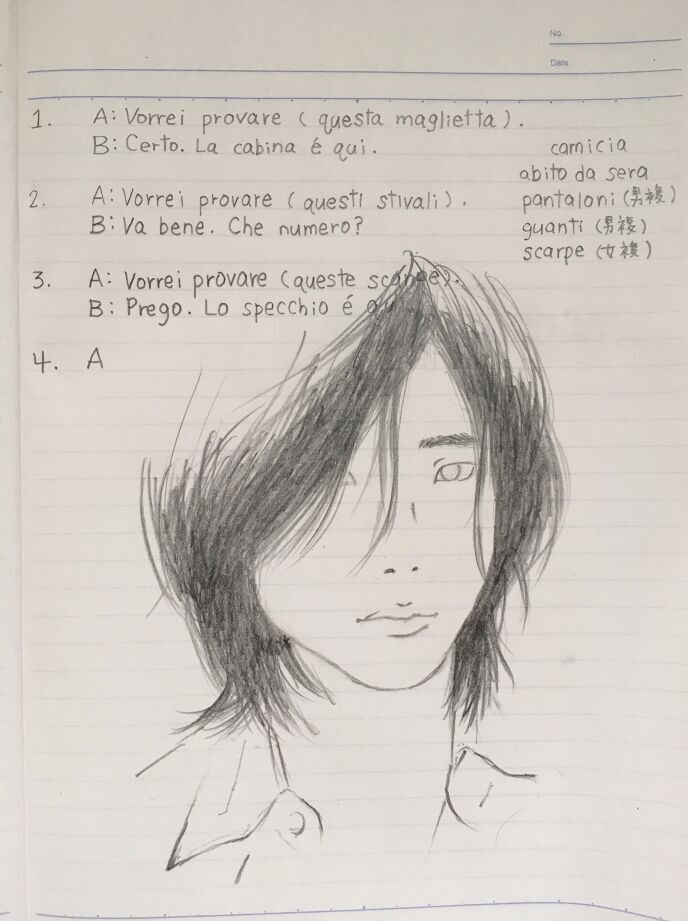 No.
Date
1. A: Vorrei provare (questa maglietta).
B: Certo. La cabina é qui.
camicia
abito da sera
2. A: Vorrei provare (questi stivali).
pantaloni (男複)
B: Va bene. Che numero?
guanti (男複)
scarpe (女複)
3. A: Vorrei provare (queste scarpe).
B: Prego. Lo specchio é
4. A